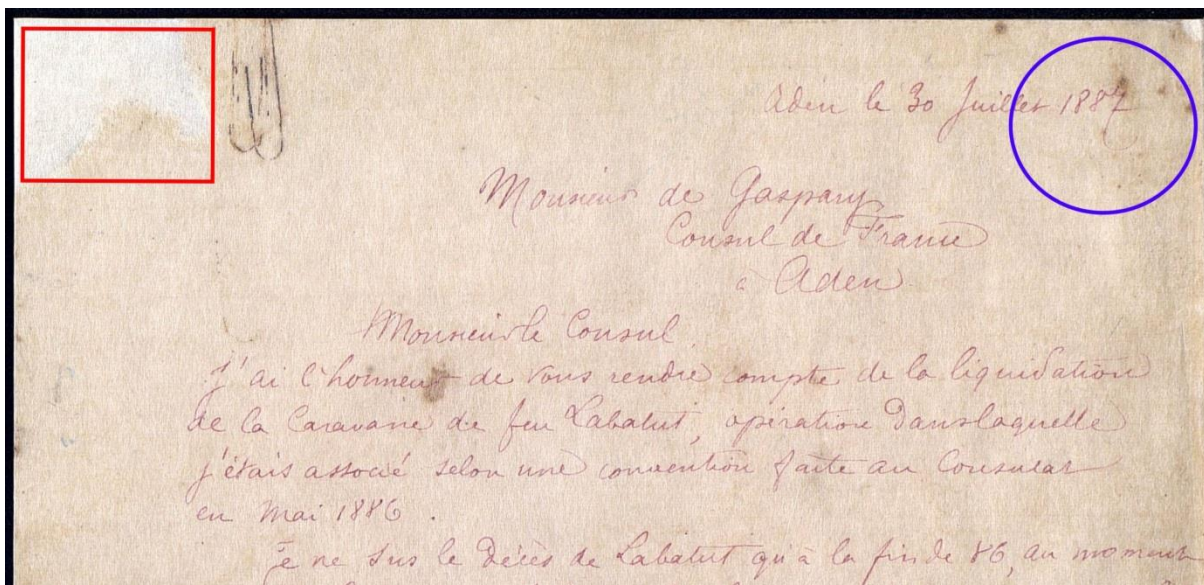 Aden le 30 Juillet 1887
Monsieur de Gaspary
Consul de France
à Aden
Monsieur le Consul.
J'ai l'honneur de vous rendre compte de la liquidation
de la Caravane de feu Labatut, opération dans laquelle
j'étais associé selon une convention faite au Consulat
en mai 1886.
Je ne sus le décès de Labatut qu'à la fin de 86, au moment